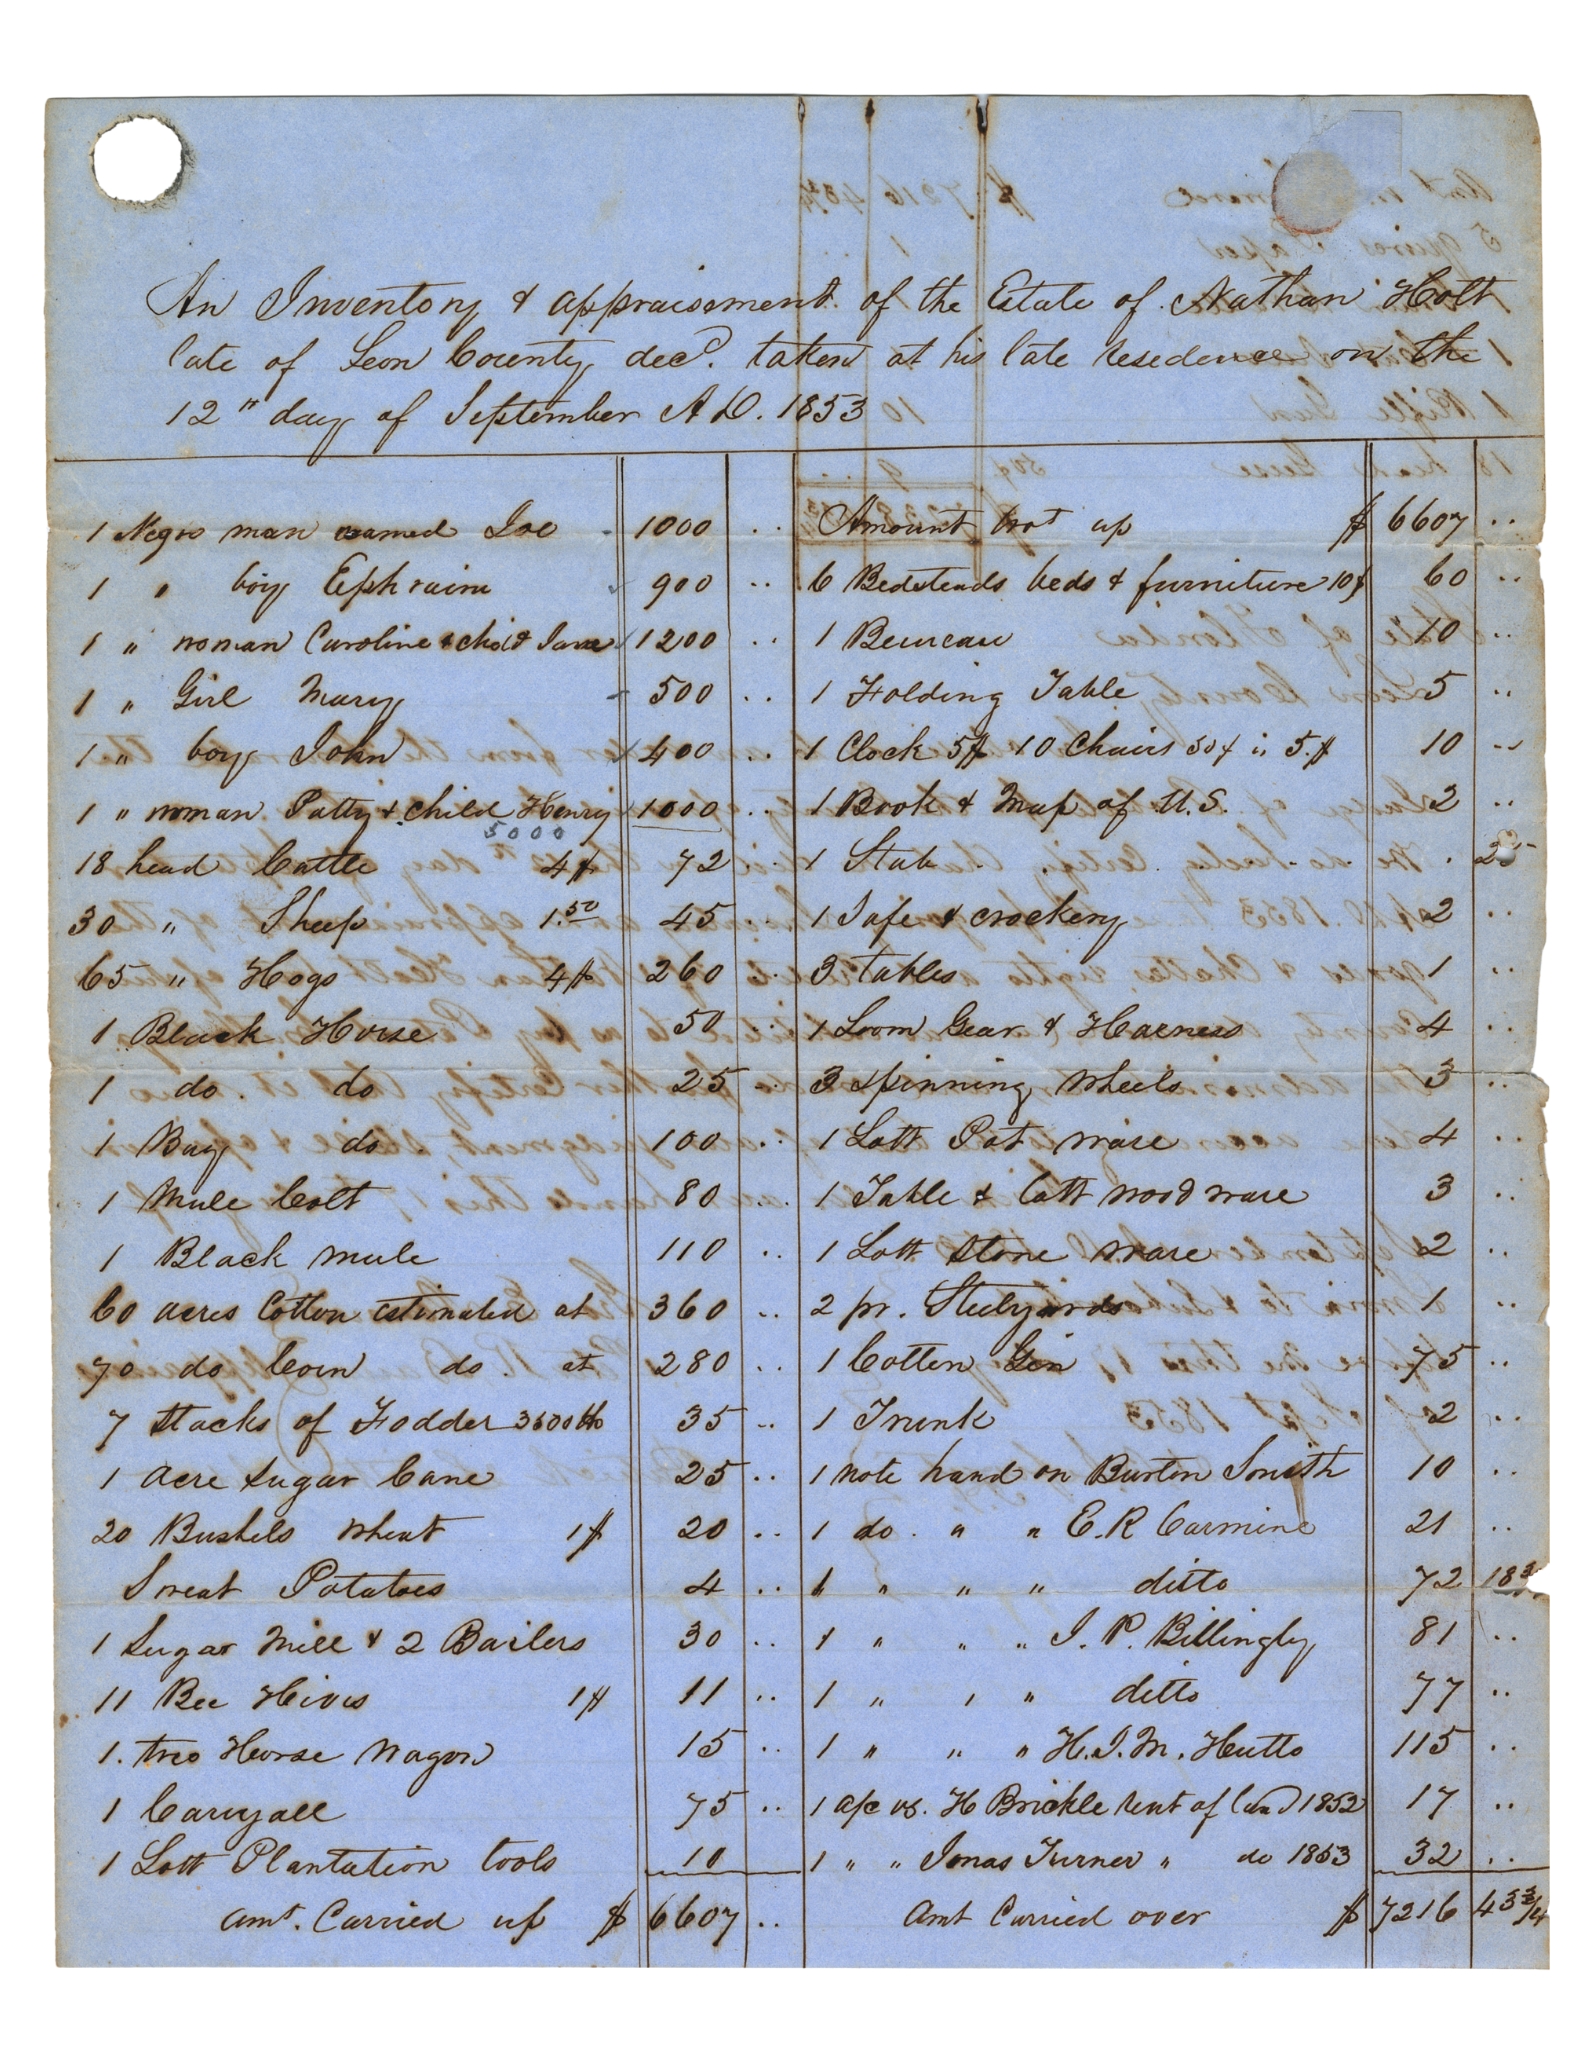 An Inventory & appraisement of the Estate of Nathan Holt
late of Leon County decd. taken at his late resedence on the
12" day of September A D. 1853
1 Negro man named Joe - 1000 ..
1 " boy Ephraim 900 ..
1 " woman Caroline & child Jane 1200 ..
1 " Girl Mary - 500 ..
1 " boy John 400 ..
1 " woman Patty & child Henry 1000 ..
5000
18 head Cattle 4$ 72 ..
30 " Sheep 1.50 45 ..
65 " Hogs 4$ 260 ..
1 Black Horse 50 ..
1 do. do 25 ..
1 Bay do 100 ..
1 Mule Colt 80 ..
1 Black mule 110 ..
60 acres Cotton estimated at 360 ..
70 do Corn do. at 280 ..
7 Stacks of Fodder 3500 lbs 35 ..
1 acre Sugar Cane 25 ..
20 Bushels wheat 1$ 20 ..
Sweat Potatoes 4 ..
1 Sugar Mill & 2 Boilers 30 ..
11 Bee Hives 1$ 11 ..
1. two Horse wagon 15 ..
1 Carryall 75 ..
1 Lott Plantation tools 10
amt. Carried up $ 6607 ..
Amount brot up $ 6607 ..
6 Bedsteads beds & furniture 10$ 60 ..
1 Beureau 10 ..
1 Folding Table 5 ..
1 Clock 5$ 10 Chairs 50¢ is 5.$ 10 ..
1 Book & Map of U.S. 2 ..
1 Slab . . . . . 25
1 Safe & crockery 2 ..
3 tables 1 ..
1 Loom Gear & Harness 4 ..
3 spinning wheels 3 ..
1 Lott Pot ware 4 ..
1 Table & Lott wood ware 3 ..
1 Lott Stone ware 2 ..
2 pr. Steelyards 1 ..
1 Cotton Gin 75 ..
1 Trunk 2 ..
1 note hand on Burton Smith 10 ..
1 do. " " E. R Carmine 21 ..
1 " " " ditto 72 18 3/4
1 " " " J. P. Billingly 81 ..
1 " " " ditto 77 ..
1 " " " H. J. M. Hutto 115 ..
1 a/c vs. H Brickle rent of land 1852 17 ..
1 " " Jonas Turner " do 1853 32 ..
Amt Carried over $ 7216 43 3/4